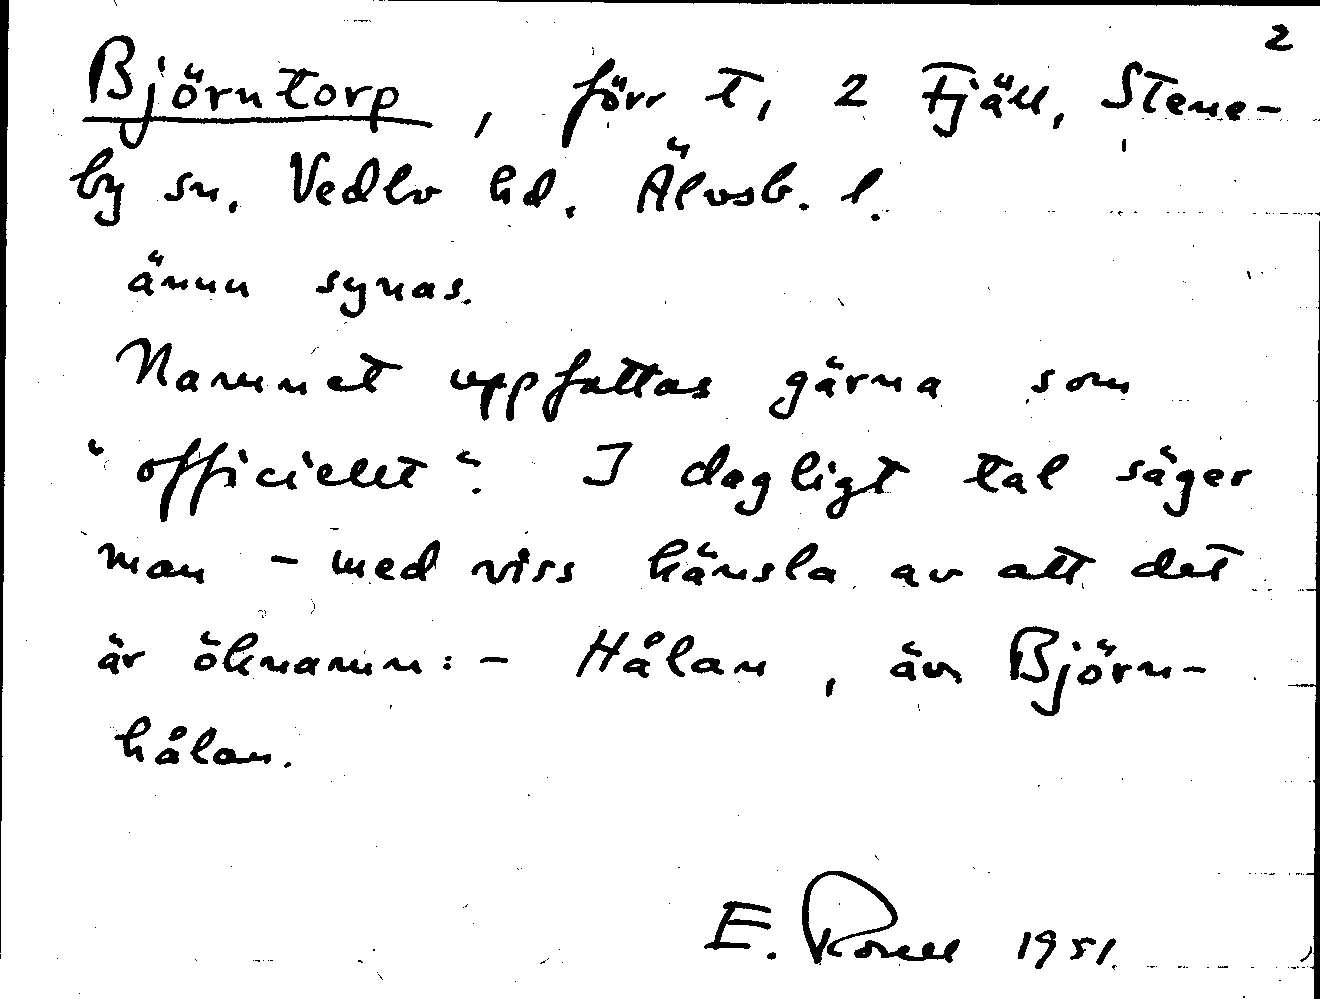 2
Björntorp, förr t, 2 Fjäll, Stene-
by sn. Vedbo hd. Älvsb. l.
ännu synas.
Namnet uppfattas gärna som
"officiellt". I dagligt tal säger
man - med viss känsla av att det
är öknamn: - Hålan, äv. Björn-
hålan.
E. 1951